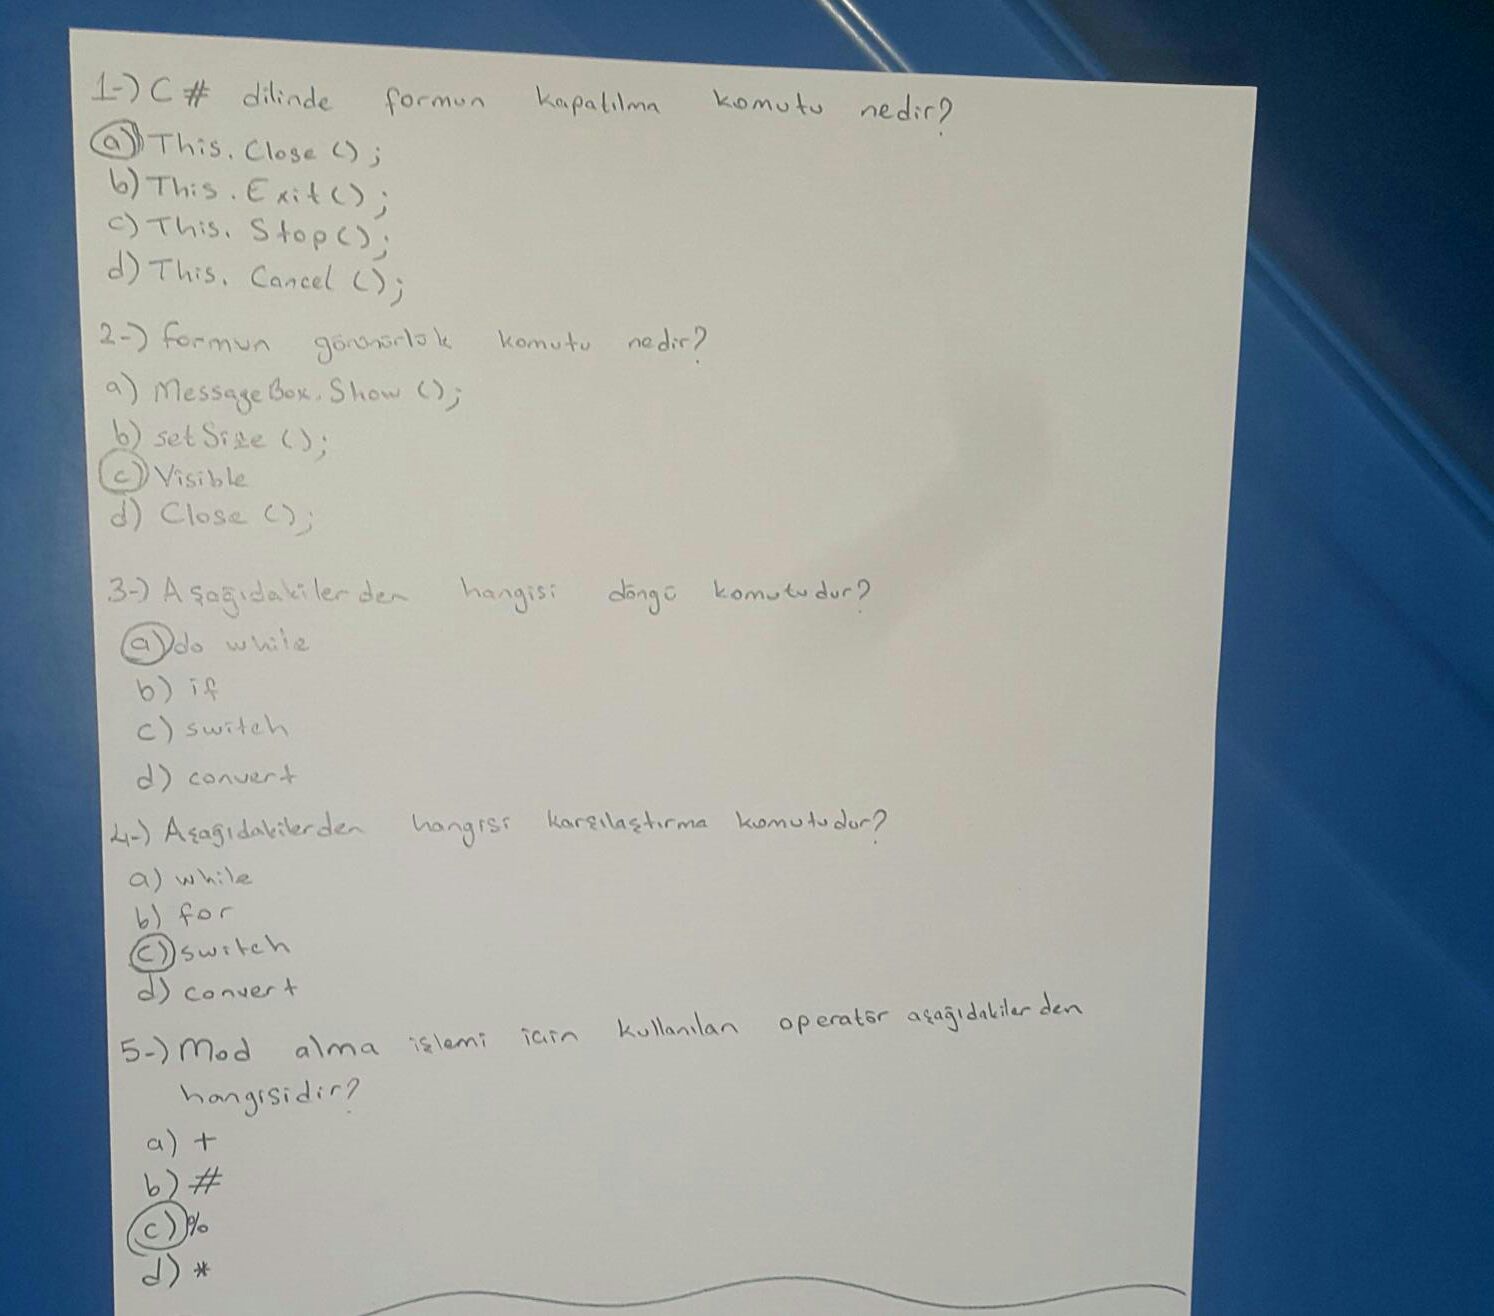 1-) C# dilinde formun kapatılma komutu nedir?
a) This.Close();
b) This.Exit();
c) This.Stop();
d) This.Cancel();
2-) formun görünürlük komutu nedir?
a) MessageBox.Show();
b) setSize();
c) Visible
d) Close();
3-) Aşağıdakilerden hangisi döngü komutudur?
a) do while
b) if
c) switch
d) convert
4-) Aşağıdakilerden hangisi karşılaştırma komutudur?
a) while
b) for
c) switch
d) convert
5-) Mod alma işlemi için kullanılan operatör aşağıdakilerden
hangisidir?
a) +
b) #
c) %
d) *